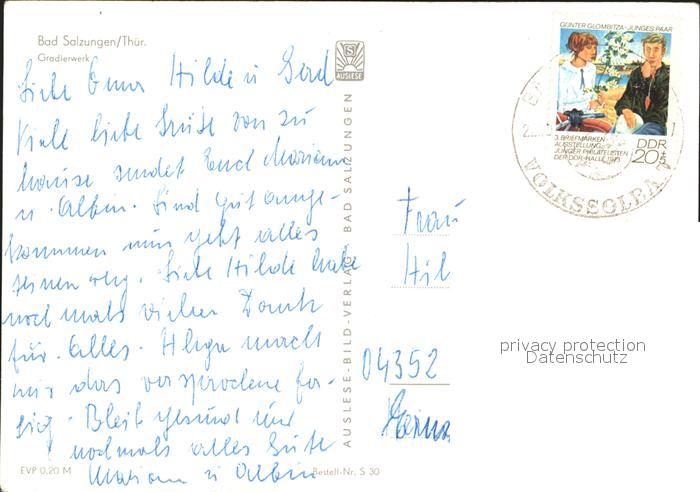 Bad Salzungen/Thür.
Gradierwerk
Liebe Oma Hilde u Gerd
Viele liebe Grüße von zu
hause sendet Euch Mariann
u. Albin. Sind gut ange-
kommen nun geht alles
seinen weg. Liebe Hilde habe
noch mals vielen Dank
für. Alles. macht
mir das versprochene fer-
tig. Bleibt gesund und
nochmals alles Gute
Mariann u Albin
EVP 0,20 M
Bestell-Nr. S 30
AUSLESE
AUSLESE-BILD-VERLAG BAD SALZUNGEN
GÜNTER GLOMBITZA-JUNGES PAAR
3. BRIEFMARKEN-
AUSSTELLUNG
JUNGER PHILATELISTEN
DER DDR-HALLE 1973
DDR
20+5
VOLKSSOLBAD
Frau
Hil
04352
privacy protection
Datenschutz